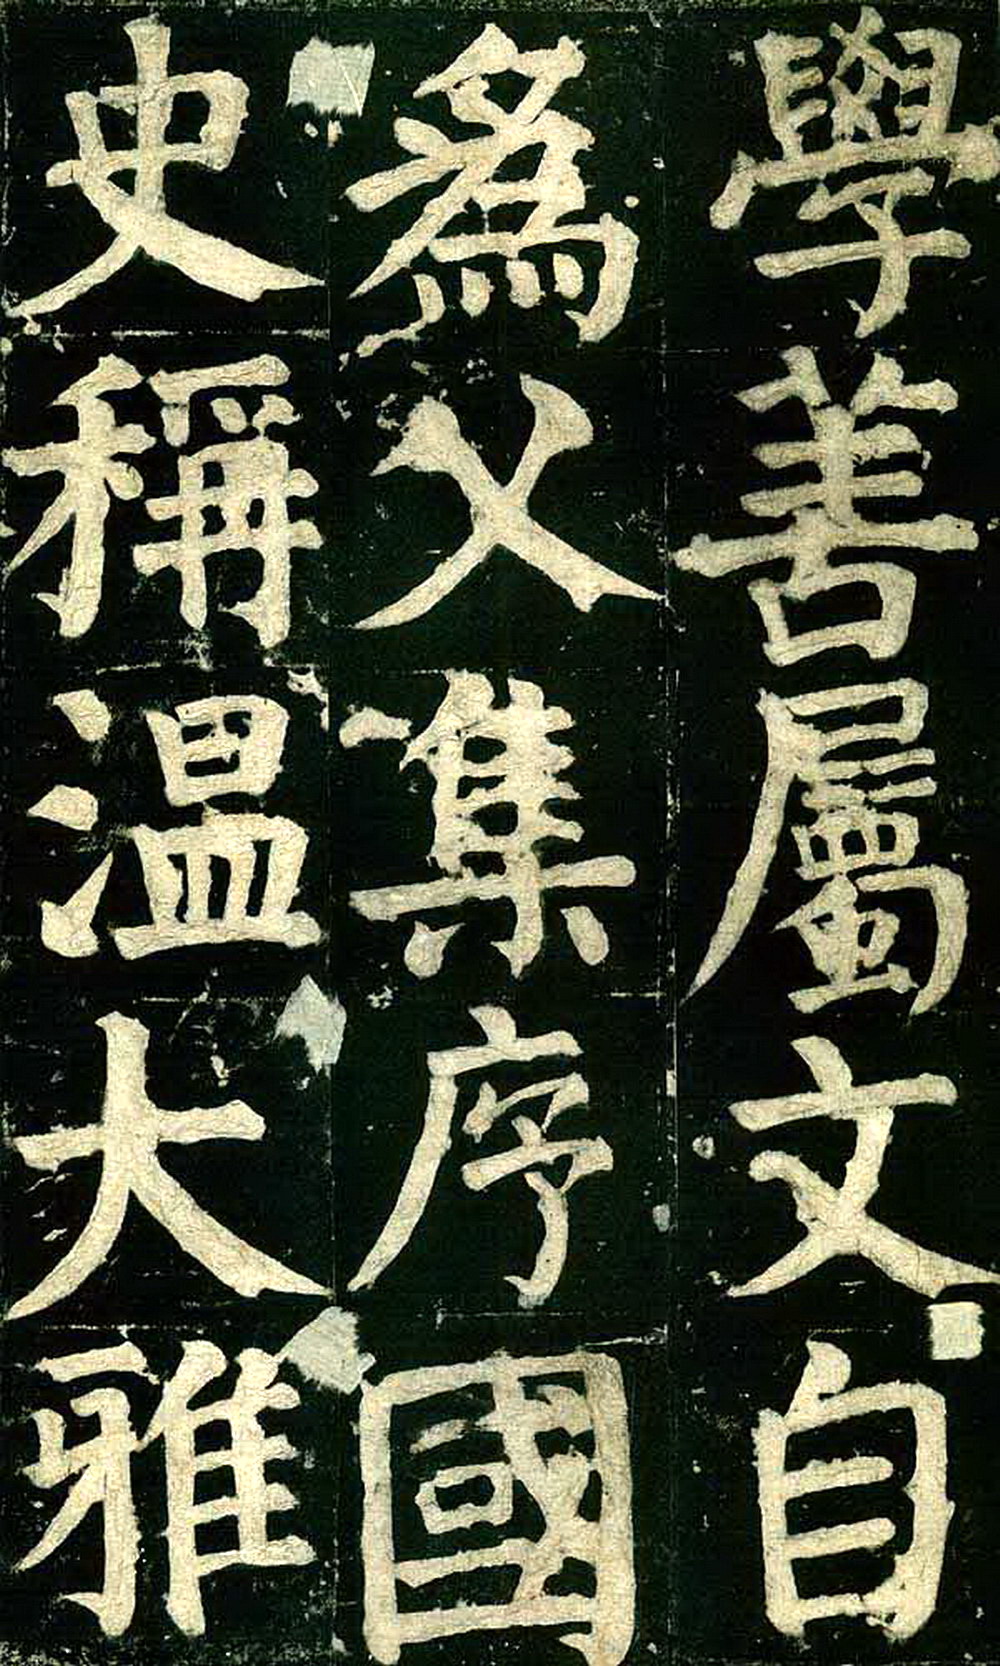 學善屬文自
為父集序國
史稱溫大雅